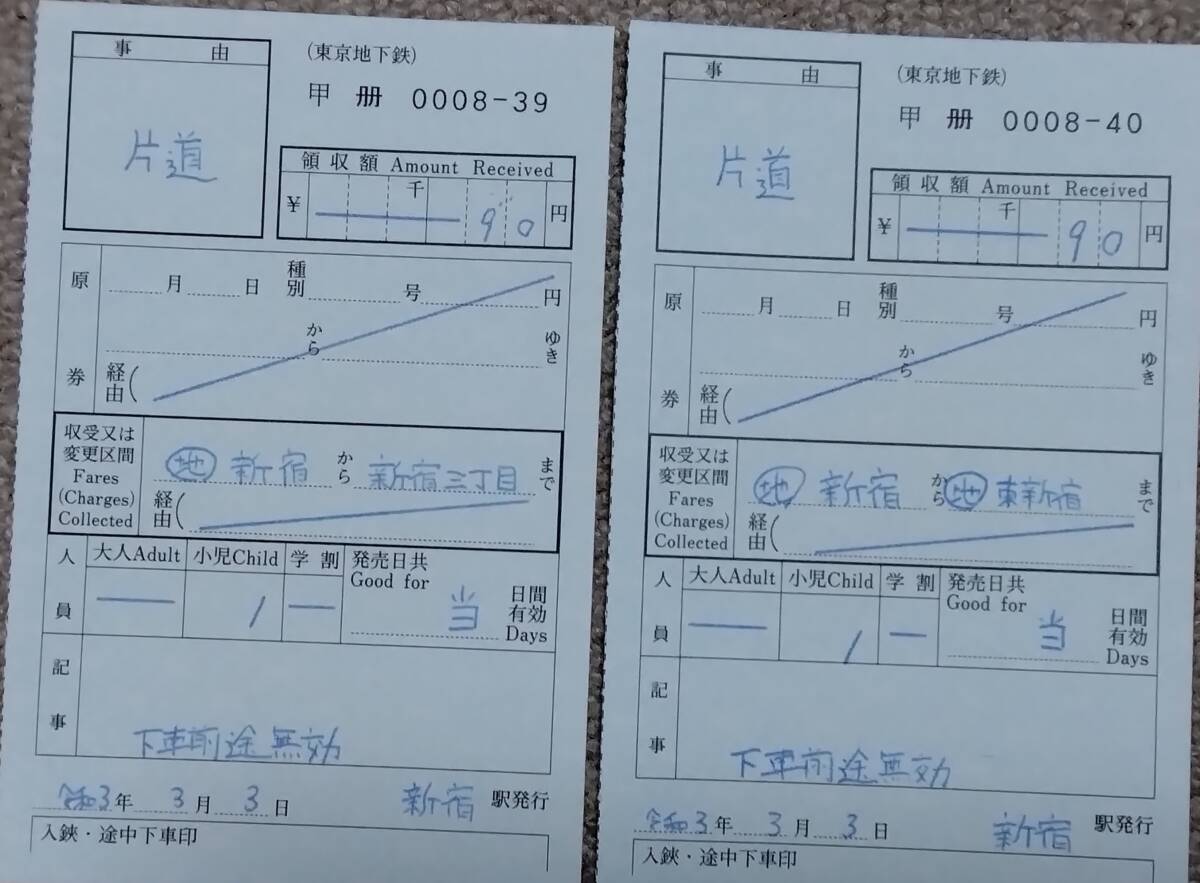 事 由
片道
(東京地下鉄)
甲 册 0008-39
領収額 Amount Received
千
¥ 90 円
原券
月 日 種別 号 円
から ゆき
経由(
収受又は変更区間 Fares (Charges) Collected
地 新宿 から 新宿三丁目 まで
経由(
人員
大人Adult 小児Child 学割 発売日共 Good for 日間有効 Days
― 1 ― 当
記事
下車前途無効
令和3年 3月 3日 新宿 駅発行
入鋏・途中下車印
事 由
片道
(東京地下鉄)
甲 册 0008-40
領収額 Amount Received
千
¥ 90 円
原券
月 日 種別 号 円
から ゆき
経由(
収受又は変更区間 Fares (Charges) Collected
地 新宿 から 地 東新宿 まで
経由(
人員
大人Adult 小児Child 学割 発売日共 Good for 日間有効 Days
― 1 ― 当
記事
下車前途無効
令和3年 3月 3日 新宿 駅発行
入鋏・途中下車印